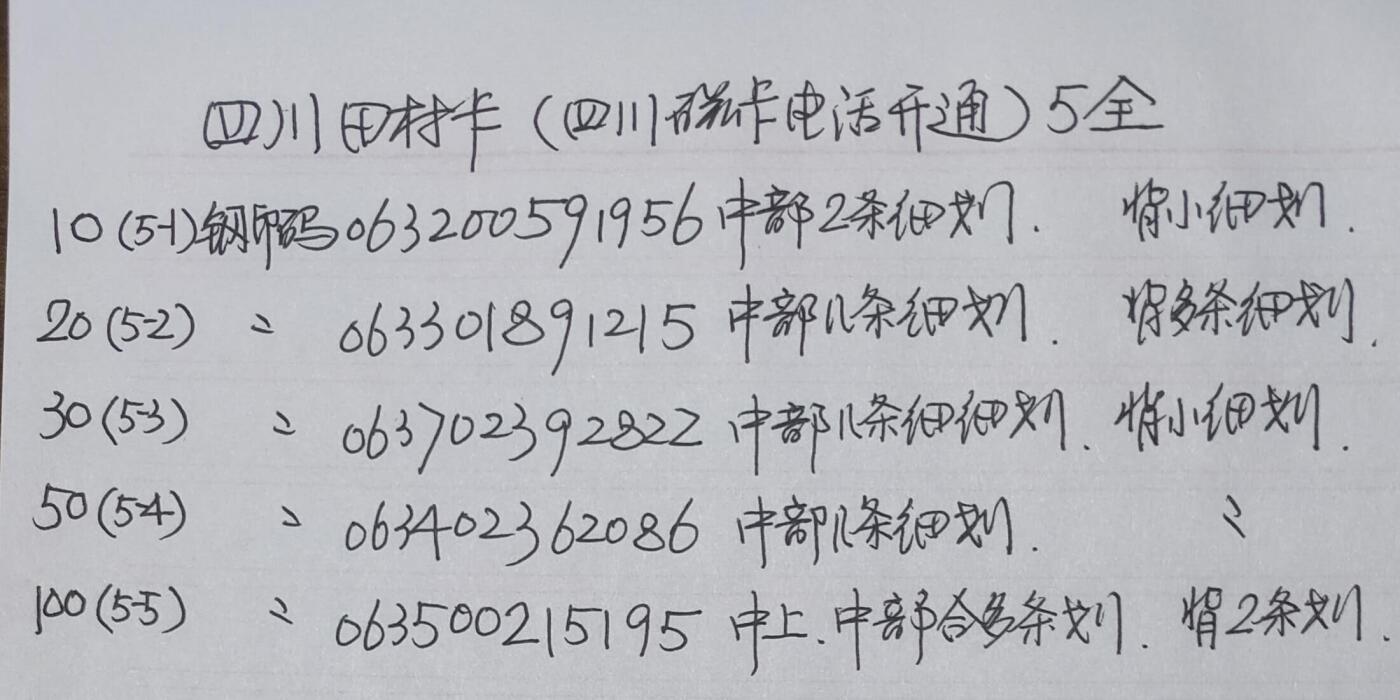 四川田村卡（四川磁卡电话开通）5全
10(5-1)钢印码063200591956中部2条细划. 背小细划.
20(5-2) 〃 063301891215 中部1条细划. 背多条细划.
30(5-3) 〃 063702392822 中部1条细细划. 背小细划.
50(5-4) 〃 063402362086 中部1条细划. 〃
100(5-5) 〃 063500215195 中上.中部合多条划. 背2条划.